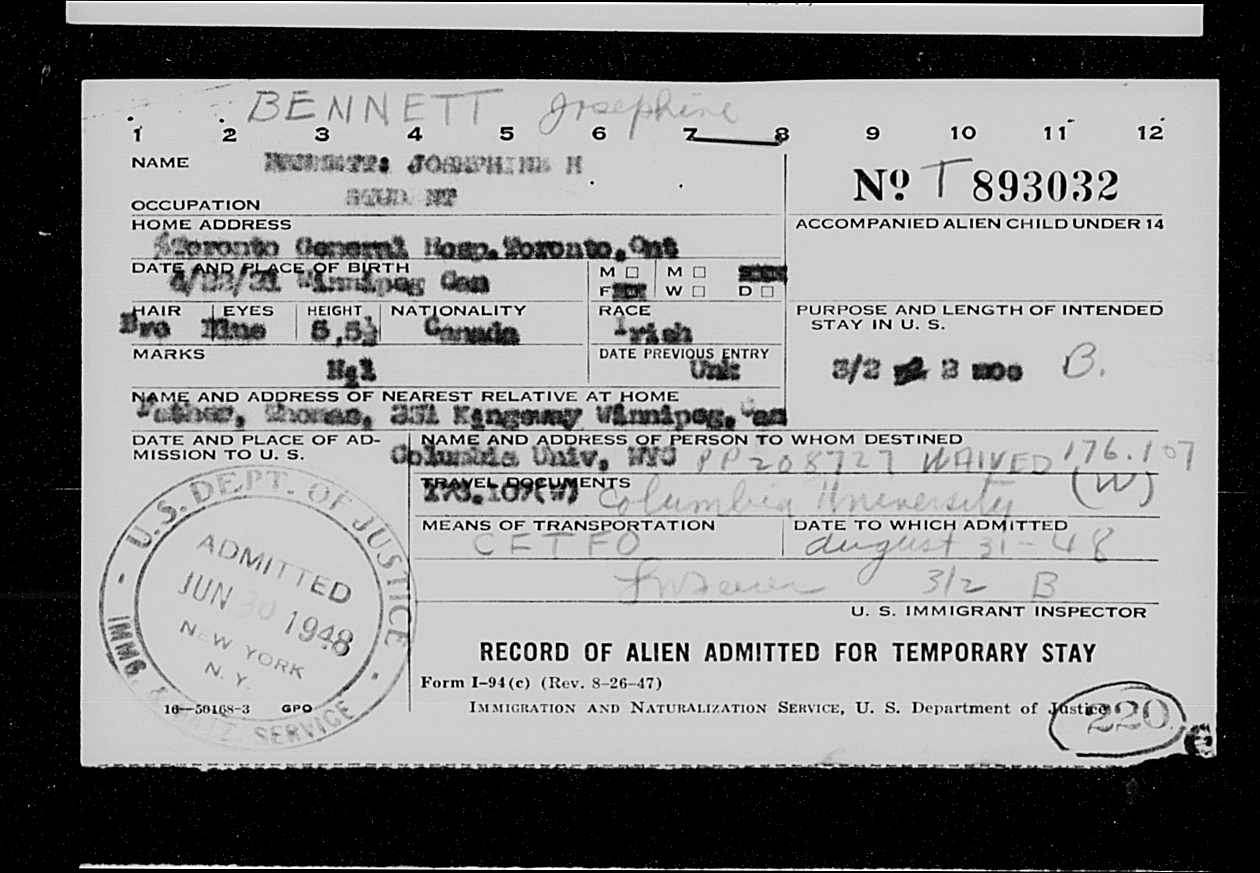 BENNETT Josephine
1 2 3 4 5 6 7 8 9 10 11 12
NAME BENNETT: JOSEPHINE M
OCCUPATION STUDENT
Nº T 893032
HOME ADDRESS
Toronto General Hosp. Toronto, Ont
ACCOMPANIED ALIEN CHILD UNDER 14
DATE AND PLACE OF BIRTH
Winnipeg Can
M □ M □
F W □ D □
HAIR EYES HEIGHT NATIONALITY RACE
Bro Blue 5,5½ Canada Irish
PURPOSE AND LENGTH OF INTENDED
STAY IN U. S.
3/2 3 mos B.
MARKS DATE PREVIOUS ENTRY
Unk
NAME AND ADDRESS OF NEAREST RELATIVE AT HOME
Father, Thomas, 331 Kingsway Winnipeg, Can
DATE AND PLACE OF AD-
MISSION TO U. S.
NAME AND ADDRESS OF PERSON TO WHOM DESTINED
Columbia Univ, NYC PP208727 WAIVED 176.107
TRAVEL DOCUMENTS
175.107(W) Columbia University (W)
MEANS OF TRANSPORTATION DATE TO WHICH ADMITTED
CFTFO august 31-48
3/2 B
U. S. IMMIGRANT INSPECTOR
U.S. DEPT. OF JUSTICE
ADMITTED
JUN 30 1948
NEW YORK
N. Y.
IMMG. & NATZ. SERVICE
RECORD OF ALIEN ADMITTED FOR TEMPORARY STAY
Form I-94(c) (Rev. 8-26-47)
16—50168-3 GPO
IMMIGRATION AND NATURALIZATION SERVICE, U. S. Department of Justice
220